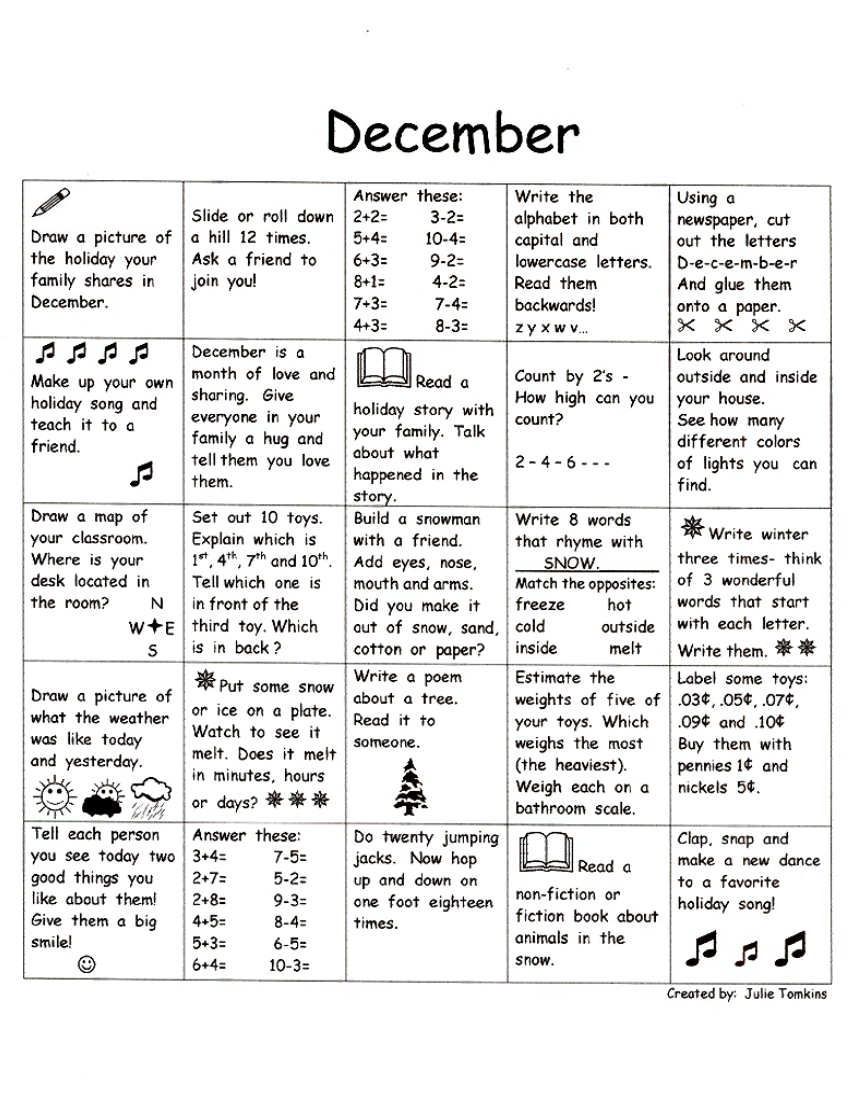 December
Draw a picture of
the holiday your
family shares in
December.
Slide or roll down
a hill 12 times.
Ask a friend to
join you!
Answer these:
2+2= 3-2=
5+4= 10-4=
6+3= 9-2=
8+1= 4-2=
7+3= 7-4=
4+3= 8-3=
Write the
alphabet in both
capital and
lowercase letters.
Read them
backwards!
z y x w v...
Using a
newspaper, cut
out the letters
D-e-c-e-m-b-e-r
And glue them
onto a paper.
Make up your own
holiday song and
teach it to a
friend.
December is a
month of love and
sharing. Give
everyone in your
family a hug and
tell them you love
them.
Read a
holiday story with
your family. Talk
about what
happened in the
story.
Count by 2's -
How high can you
count?
2 - 4 - 6 - - -
Look around
outside and inside
your house.
See how many
different colors
of lights you can
find.
Draw a map of
your classroom.
Where is your
desk located in
the room? N
W E
S
Set out 10 toys.
Explain which is
1st, 4th, 7th and 10th.
Tell which one is
in front of the
third toy. Which
is in back?
Build a snowman
with a friend.
Add eyes, nose,
mouth and arms.
Did you make it
out of snow, sand,
cotton or paper?
Write 8 words
that rhyme with
SNOW.
Match the opposites:
freeze hot
cold outside
inside melt
Write winter
three times- think
of 3 wonderful
words that start
with each letter.
Write them.
Draw a picture of
what the weather
was like today
and yesterday.
Put some snow
or ice on a plate.
Watch to see it
melt. Does it melt
in minutes, hours
or days?
Write a poem
about a tree.
Read it to
someone.
Estimate the
weights of five of
your toys. Which
weighs the most
(the heaviest).
Weigh each on a
bathroom scale.
Label some toys:
.03¢, .05¢, .07¢,
.09¢ and .10¢
Buy them with
pennies 1¢ and
nickels 5¢.
Tell each person
you see today two
good things you
like about them!
Give them a big
smile!
Answer these:
3+4= 7-5=
2+7= 5-2=
2+8= 9-3=
4+5= 8-4=
5+3= 6-5=
6+4= 10-3=
Do twenty jumping
jacks. Now hop
up and down on
one foot eighteen
times.
Read a
non-fiction or
fiction book about
animals in the
snow.
Clap, snap and
make a new dance
to a favorite
holiday song!
Created by: Julie Tomkins